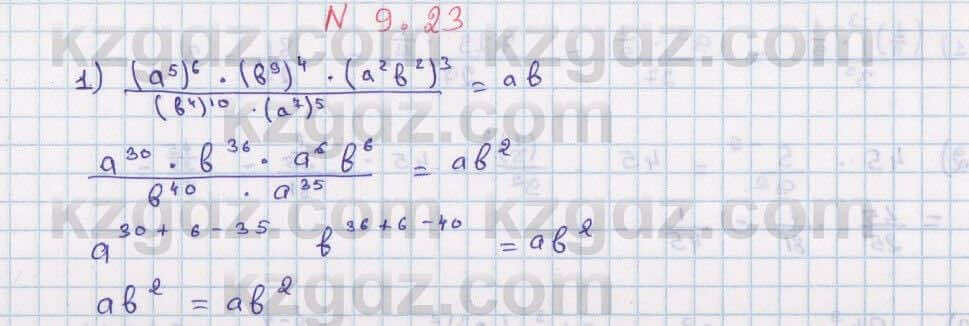 N 9.23
kzgdz.com kzgdz.com
1) (a⁵)⁶ · (b⁹)⁴ · (a²b²)³ / (b⁴)¹⁰ · (a⁷)⁵ = ab
kzgdz.com kzgdz.com
a³⁰ · b³⁶ · a⁶ b⁶ / b⁴⁰ · a³⁵ = ab²
kzgdz.com kzgdz.com
a³⁰⁺⁶⁻³⁵ b³⁶⁺⁶⁻⁴⁰ = ab²
ab² = ab²
kzgdz.com kzgdz.com